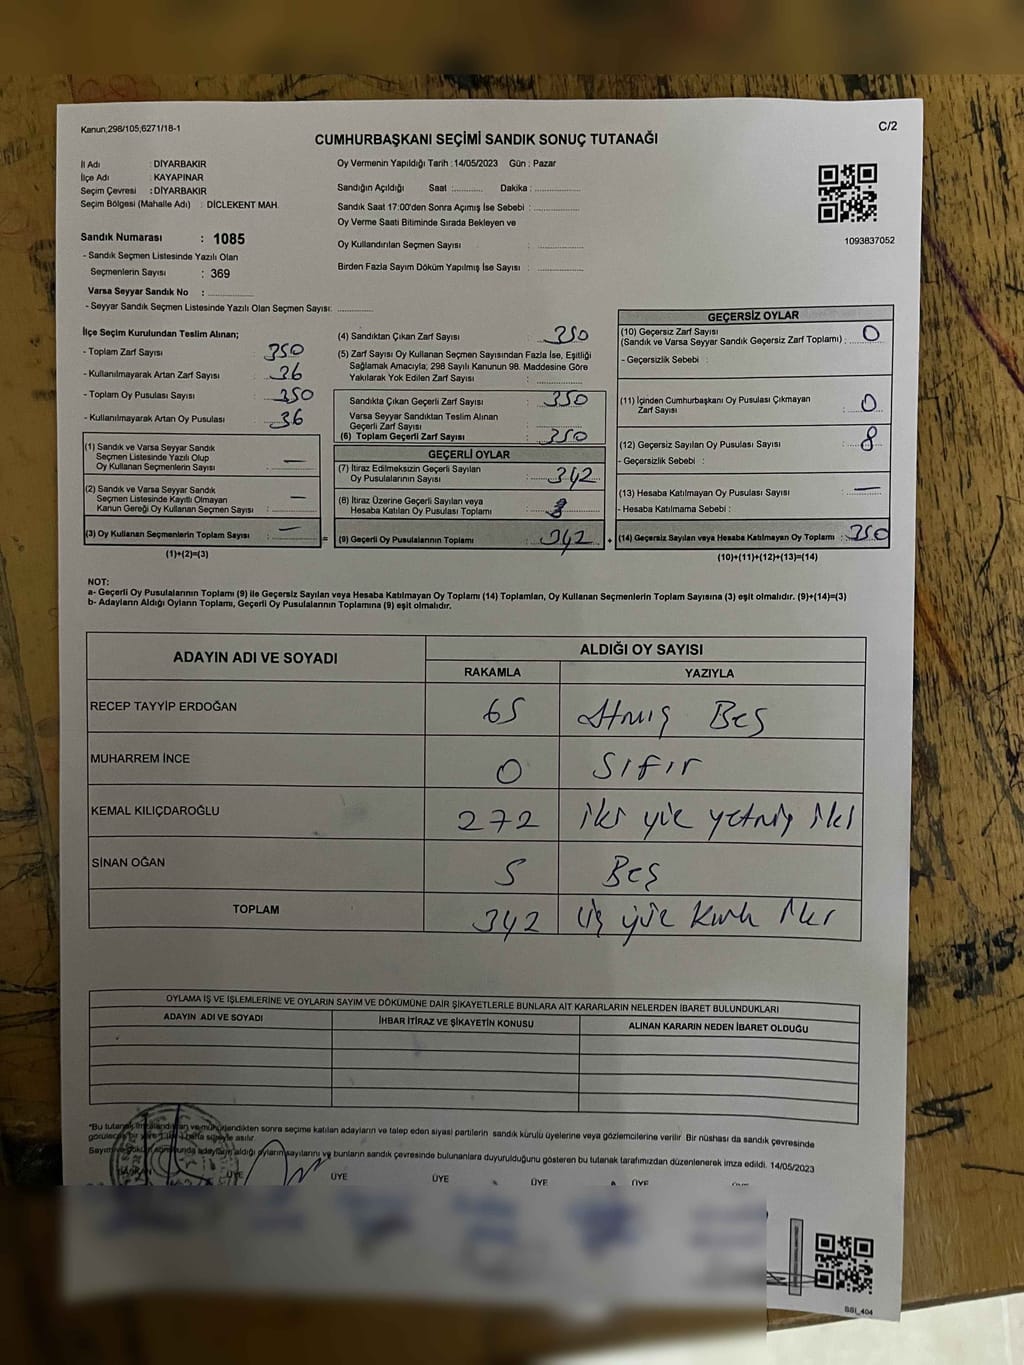 Kanun;298/105;6271/18-1
C/2
CUMHURBAŞKANI SEÇİMİ SANDIK SONUÇ TUTANAĞI
İl Adı : DİYARBAKIR
İlçe Adı : KAYAPINAR
Seçim Çevresi : DİYARBAKIR
Seçim Bölgesi (Mahalle Adı) : DİCLEKENT MAH.
Sandık Numarası : 1085
- Sandık Seçmen Listesinde Yazılı Olan
Seçmenlerin Sayısı : 369
Varsa Seyyar Sandık No : ..............
- Seyyar Sandık Seçmen Listesinde Yazılı Olan Seçmen Sayısı: ............
Oy Vermenin Yapıldığı Tarih : 14/05/2023 Gün : Pazar
Sandığın Açıldığı Saat :.......... Dakika : ..............
Sandık Saat 17:00'den Sonra Açımış İse Sebebi : ..............
Oy Verme Saati Bitiminde Sırada Bekleyen ve
Oy Kullandırılan Seçmen Sayısı : ..............
Birden Fazla Sayım Döküm Yapılmış İse Sayısı : ..............
1093837052
İlçe Seçim Kurulundan Teslim Alınan;
- Toplam Zarf Sayısı : 350
- Kullanılmayarak Artan Zarf Sayısı : 36
- Toplam Oy Pusulası Sayısı : 350
- Kullanılmayarak Artan Oy Pusulası : 36
(1) Sandık ve Varsa Seyyar Sandık
Seçmen Listesinde Yazılı Olup
Oy Kullanan Seçmenlerin Sayısı : —
(2) Sandık ve Varsa Seyyar Sandık
Seçmen Listesinde Kayıtlı Olmayan
Kanun Gereği Oy Kullanan Seçmen Sayısı : —
(3) Oy Kullanan Seçmenlerin Toplam Sayısı : —
(1)+(2)=(3)
=
(4) Sandıktan Çıkan Zarf Sayısı : 350
(5) Zarf Sayısı Oy Kullanan Seçmen Sayısından Fazla İse, Eşitliği
Sağlamak Amacıyla; 298 Sayılı Kanunun 98. Maddesine Göre
Yakılarak Yok Edilen Zarf Sayısı : ..............
Sandıkta Çıkan Geçerli Zarf Sayısı : 350
Varsa Seyyar Sandıktan Teslim Alınan
Geçerli Zarf Sayısı : ..............
(6) Toplam Geçerli Zarf Sayısı : 350
GEÇERLİ OYLAR
(7) İtiraz Edilmeksizin Geçerli Sayılan
Oy Pusulalarının Sayısı : 342
(8) İtiraz Üzerine Geçerli Sayılan veya
Hesaba Katılan Oy Pusulası Toplamı :
(9) Geçerli Oy Pusulalarının Toplamı : 342
+
GEÇERSİZ OYLAR
(10) Geçersiz Zarf Sayısı
(Sandık ve Varsa Seyyar Sandık Geçersiz Zarf Toplamı) : 0
- Geçersizlik Sebebi :
(11) İçinden Cumhurbaşkanı Oy Pusulası Çıkmayan
Zarf Sayısı : 0
(12) Geçersiz Sayılan Oy Pusulası Sayısı : 8
- Geçersizlik Sebebi :
(13) Hesaba Katılmayan Oy Pusulası Sayısı : —
- Hesaba Katılmama Sebebi :
(14) Geçersiz Sayılan veya Hesaba Katılmayan Oy Toplamı : 350
(10)+(11)+(12)+(13)=(14)
NOT:
a- Geçerli Oy Pusulalarının Toplamı (9) ile Geçersiz Sayılan veya Hesaba Katılmayan Oy Toplamı (14) Toplamları, Oy Kullanan Seçmenlerin Toplam Sayısına (3) eşit olmalıdır. (9)+(14)=(3)
b- Adayların Aldığı Oyların Toplamı, Geçerli Oy Pusulalarının Toplamına (9) eşit olmalıdır.
ADAYIN ADI VE SOYADI
ALDIĞI OY SAYISI
RAKAMLA YAZIYLA
RECEP TAYYİP ERDOĞAN 65 Atmış Beş
MUHARREM İNCE 0 Sıfır
KEMAL KILIÇDAROĞLU 272 iki yüz yetmiş iki
SİNAN OĞAN 5 Beş
TOPLAM 342 üç yüz kırk iki
OYLAMA İŞ VE İŞLEMLERİNE VE OYLARIN SAYIM VE DÖKÜMÜNE DAİR ŞİKAYETLERLE BUNLARA AİT KARARLARIN NELERDEN İBARET BULUNDUKLARI
ADAYIN ADI VE SOYADI İHBAR İTİRAZ VE ŞİKAYETİN KONUSU ALINAN KARARIN NEDEN İBARET OLDUĞU
"Bu tutanak mühürlendikten sonra seçime katılan adayların ve talep eden siyasi partilerin sandık kurulu üyelerine veya gözlemcilerine verilir. Bir nüshası da sandık çevresinde
görülecek bir yere 1 hafta süreyle asılır.
adayların aldığı oyların sayılarını ve bunların sandık çevresinde bulunanlara duyurulduğunu gösteren bu tutanak tarafımızdan düzenlenerek imza edildi. 14/05/2023
BAŞKAN ÜYE ÜYE ÜYE ÜYE ÜYE
SSİ_404